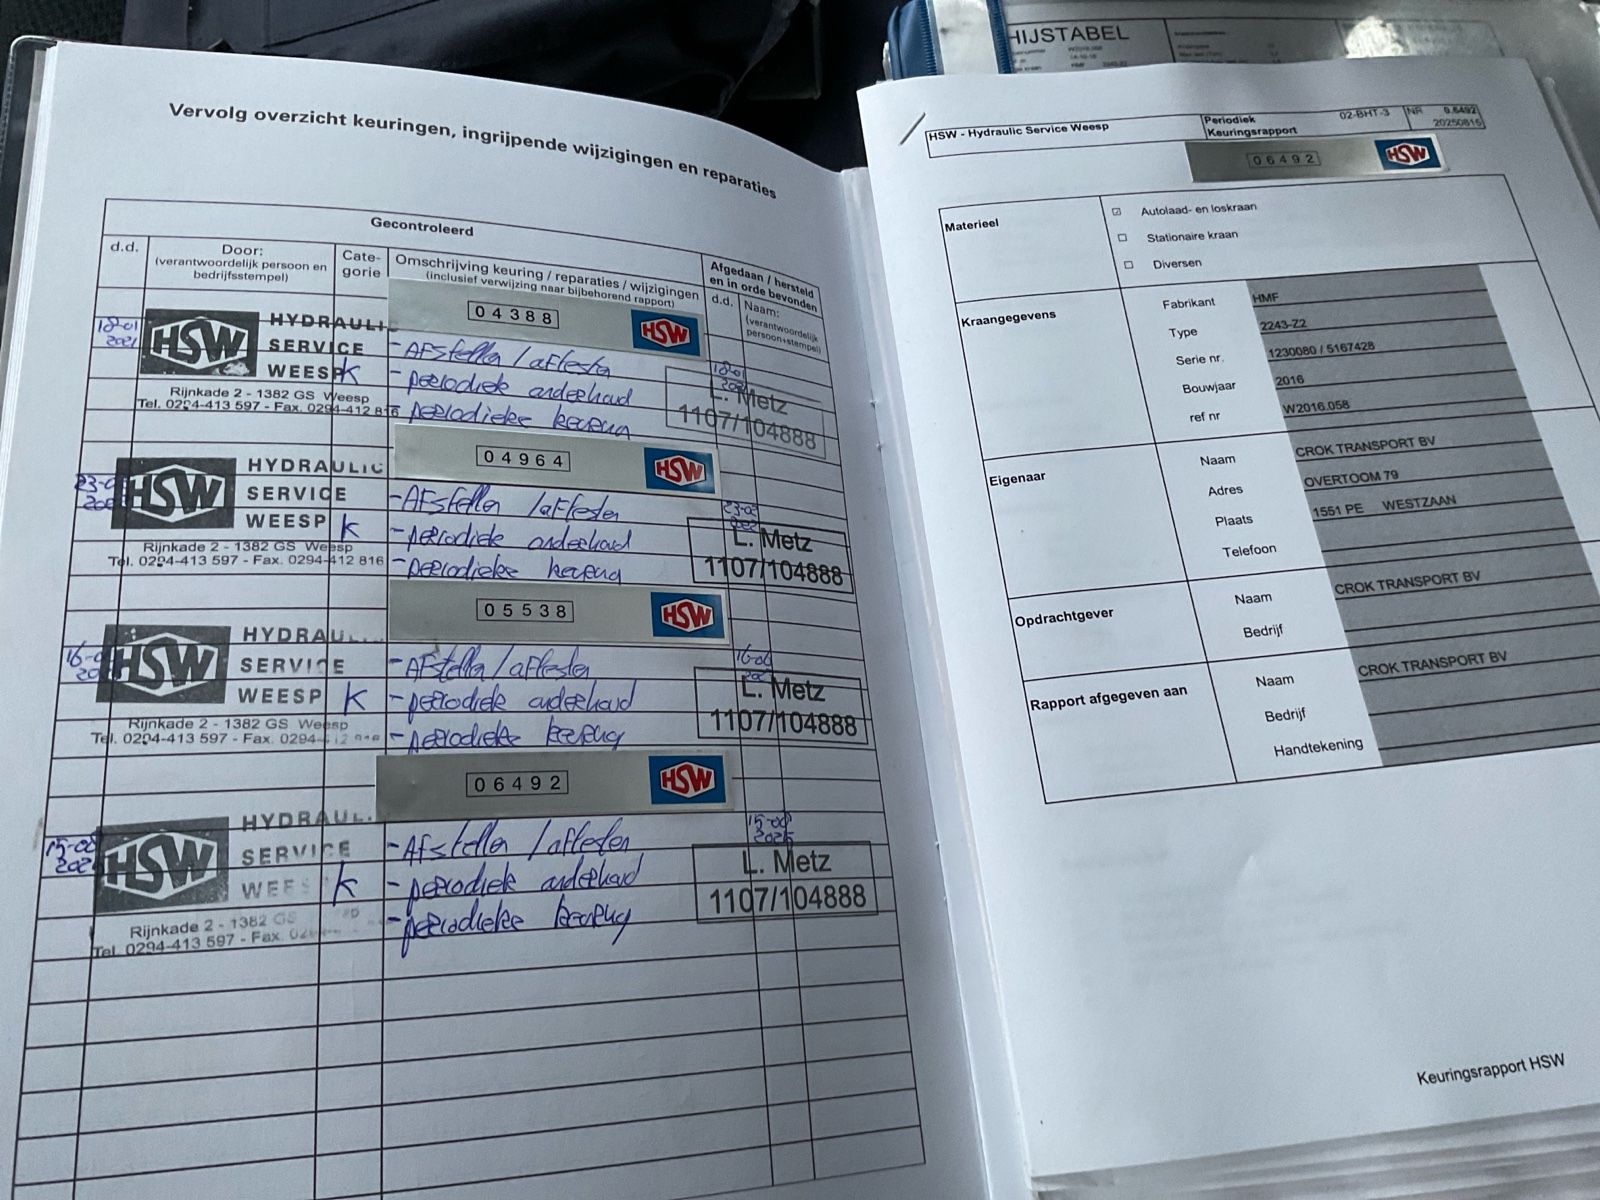 Vervolg overzicht keuringen, ingrijpende wijzigingen en reparaties
Gecontroleerd
d.d.
Door:
(verantwoordelijk persoon en
bedrijfsstempel)
Cate-
gorie
Omschrijving keuring / reparaties / wijzigingen
(inclusief verwijzing naar bijbehorend rapport)
Afgedaan / hersteld
en in orde bevonden
d.d.
Naam:
(verantwoordelijk
persoon+stempel)
04388 HSW
18-01
2021
HSW HYDRAULI
SERVICE
WEESP
Rijnkade 2 - 1382 GS Weesp
Tel. 0294-413 597 - Fax. 0294-412 816
K
- Afstellen / aftesten
- periodiek onderhoud
- periodieke keuring
18-01
L. Metz
1107/104888
04964 HSW
HSW HYDRAULIC
SERVICE
WEESP
Rijnkade 2 - 1382 GS Weesp
Tel. 0294-413 597 - Fax. 0294-412 816
K
- Afstellen / aftesten
- periodiek onderhoud
- periodieke keuring
L. Metz
1107/104888
05538 HSW
HSW HYDRAU
SERVICE
WEESP
Rijnkade 2 - 1382 GS Weesp
Tel. 0294-413 597 - Fax. 0294-
K
- Afstellen / aftesten
- periodiek onderhoud
- periodieke keuring
16-06
L. Metz
1107/104888
06492 HSW
15-08
HSW HYDRAUL
SERVICE
WEES
Rijnkade 2 - 1382 GS
Tel. 0294-413 597 - Fax.
K
- Afstellen / aftesten
- periodiek onderhoud
- periodieke keuring
15-08
2025
L. Metz
1107/104888
HIJSTABEL
HSW - Hydraulic Service Weesp
Periodiek
Keuringsrapport
02-BHT-3
NR
9.6492
20250815
06492 HSW
Materieel
☑ Autolaad- en loskraan
☐ Stationaire kraan
☐ Diversen
Kraangegevens
Fabrikant HMF
Type 2243-Z2
Serie nr. 1230080 / 5167428
Bouwjaar 2016
ref nr W2016.058
Eigenaar
Naam CROK TRANSPORT BV
Adres OVERTOOM 79
Plaats 1551 PE WESTZAAN
Telefoon
Opdrachtgever
Naam CROK TRANSPORT BV
Bedrijf
Rapport afgegeven aan
Naam CROK TRANSPORT BV
Bedrijf
Handtekening
Keuringsrapport HSW